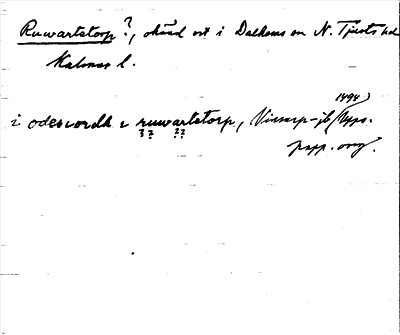 Ruwartstorp ?, okänd ort i Dalhems sn N. Tjusts hd
Kalmar l.
1494
i odesvordh i ruwartstorp, Vinsarp-jb (Upps.
?? ??
papp. orig.